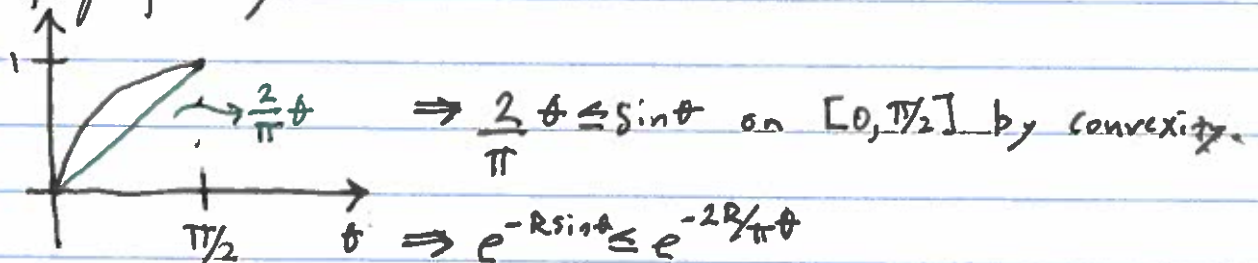 1
2/π θ
⇒ 2/π θ ≤ sinθ on [0, π/2] by convexity.
π/2 θ ⇒ e^{-R sinθ} ≤ e^{-2R/π θ}